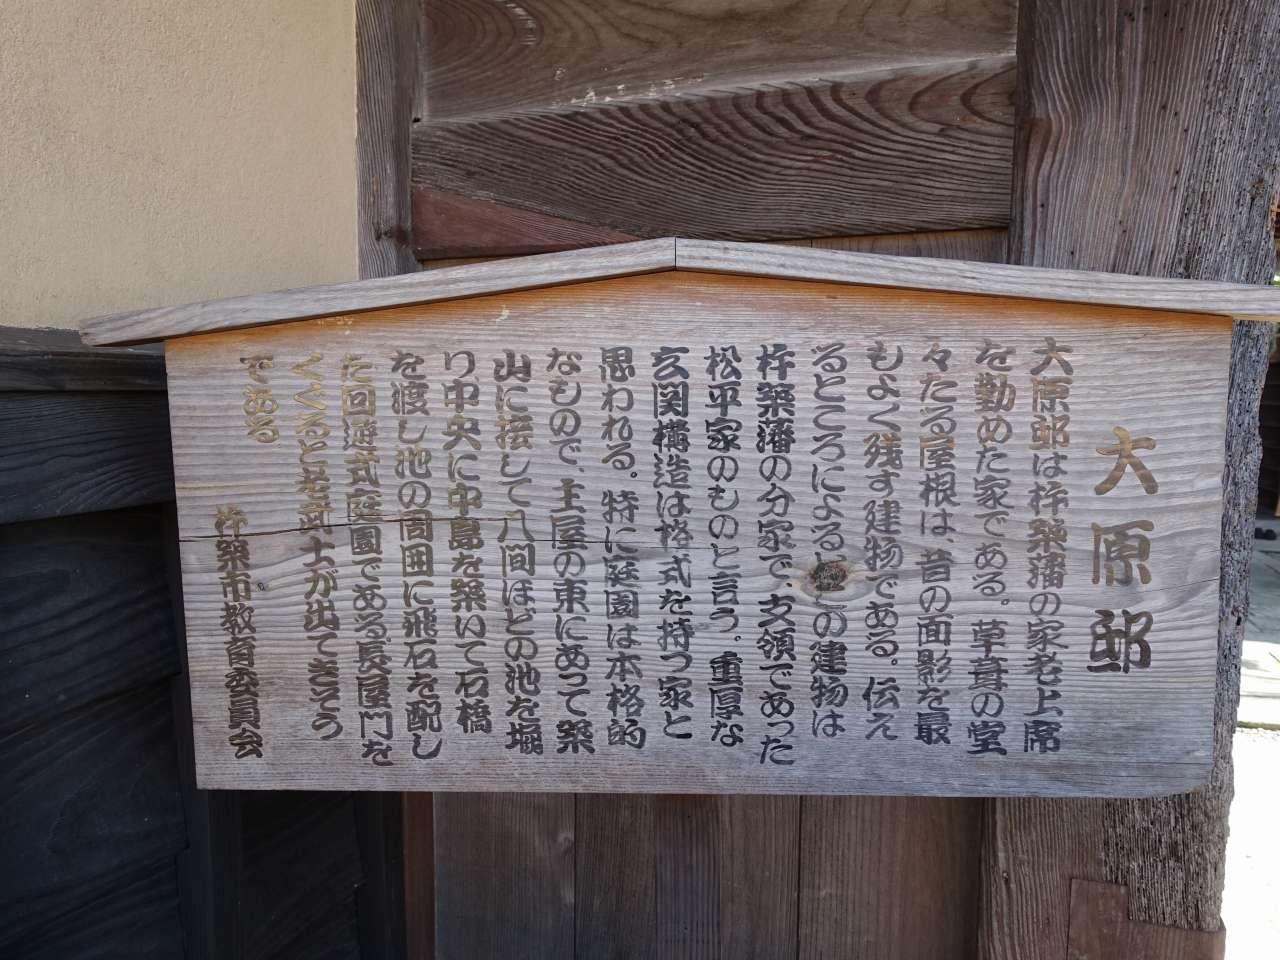 大原邸
大原邸は杵築藩の家老上席
を勤めた家である。草葺の堂
々たる屋根は、昔の面影を最
もよく残す建物である。伝え
るところによるとこの建物は
杵築藩の分家で、支領であった
松平家のものと言う。重厚な
玄関構造は格式を持つ家と
思われる。特に庭園は本格的
なもので、主屋の東にあって築
山に接して八間ほどの池を堀
り、中央に中島を築いて石橋
を渡し池の周囲に飛石を配し
た回遊式庭園である長屋門を
くぐると老武士が出てきそう
である
杵築市教育委員会